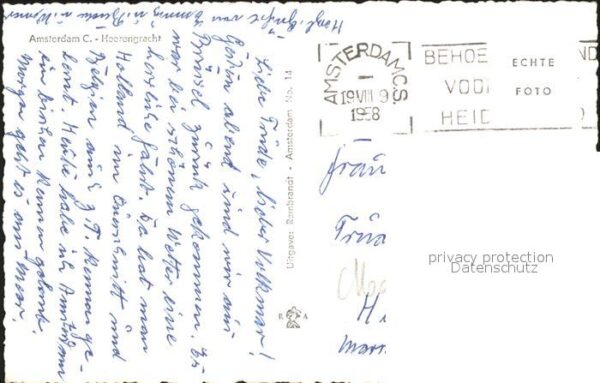 Amsterdam C. - Heerengracht
Herzl. Grüße von
Liebe Trude, lieber Volkmar!
Gestern abend sind wir aus
Brüssel zurück gekommen. Es
war bei schönem Wetter eine
herrliche Fahrt. Da hat man
Holland im Querschnitt und
Belgien auch z. T. kennen ge-
lernt. Heute habe ich Amsterdam
ein bischen kennen gelernt.
Morgen geht es ans Meer.
Uitgave: Rembrandt - Amsterdam No. 14
R A
AMSTERDAM C.S
19 VIII 9
1958
BEHOE
VOO
HEID
ECHTE
FOTO
Frau
privacy protection
Datenschutz